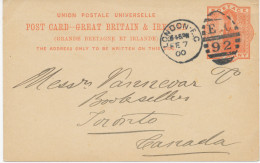 UNION POSTALE UNIVERSELLE
POST CARD-GREAT BRITAIN & IRELAND
(GRANDE BRETAGNE ET IRLANDE)
THE ADDRESS ONLY TO BE WRITTEN ON THIS
LONDON. E.C.
FE 7
00
E.C.
92
Messrs Vannevar & Co
Booksellers
Toronto
Canada